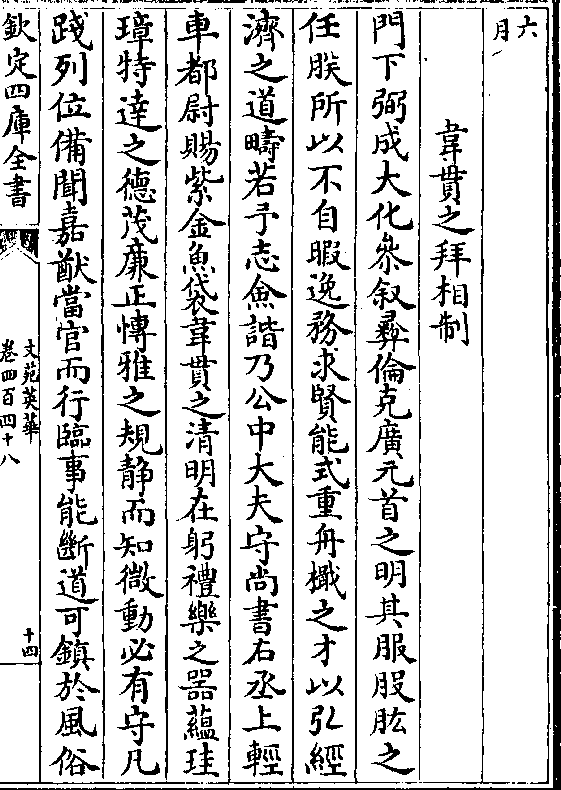 六
月
韋貫之拜相制
門下弼成大化叅叙彛倫克廣元首之明其服股肱之
任朕所以不自暇逸務求賢能式重舟檝之才以弘經
濟之道疇若予志僉諧乃公中大夫守尚書右丞上輕
車都尉賜紫金魚袋韋貫之清明在躬禮樂之器蘊珪
璋特達之德茂廉正博雅之規静而知微動必有守凡
踐列位備聞嘉猷當官而行臨事能斷道可鎮於風俗
欽定四庫全書
文苑英華
卷四百四十八
十四